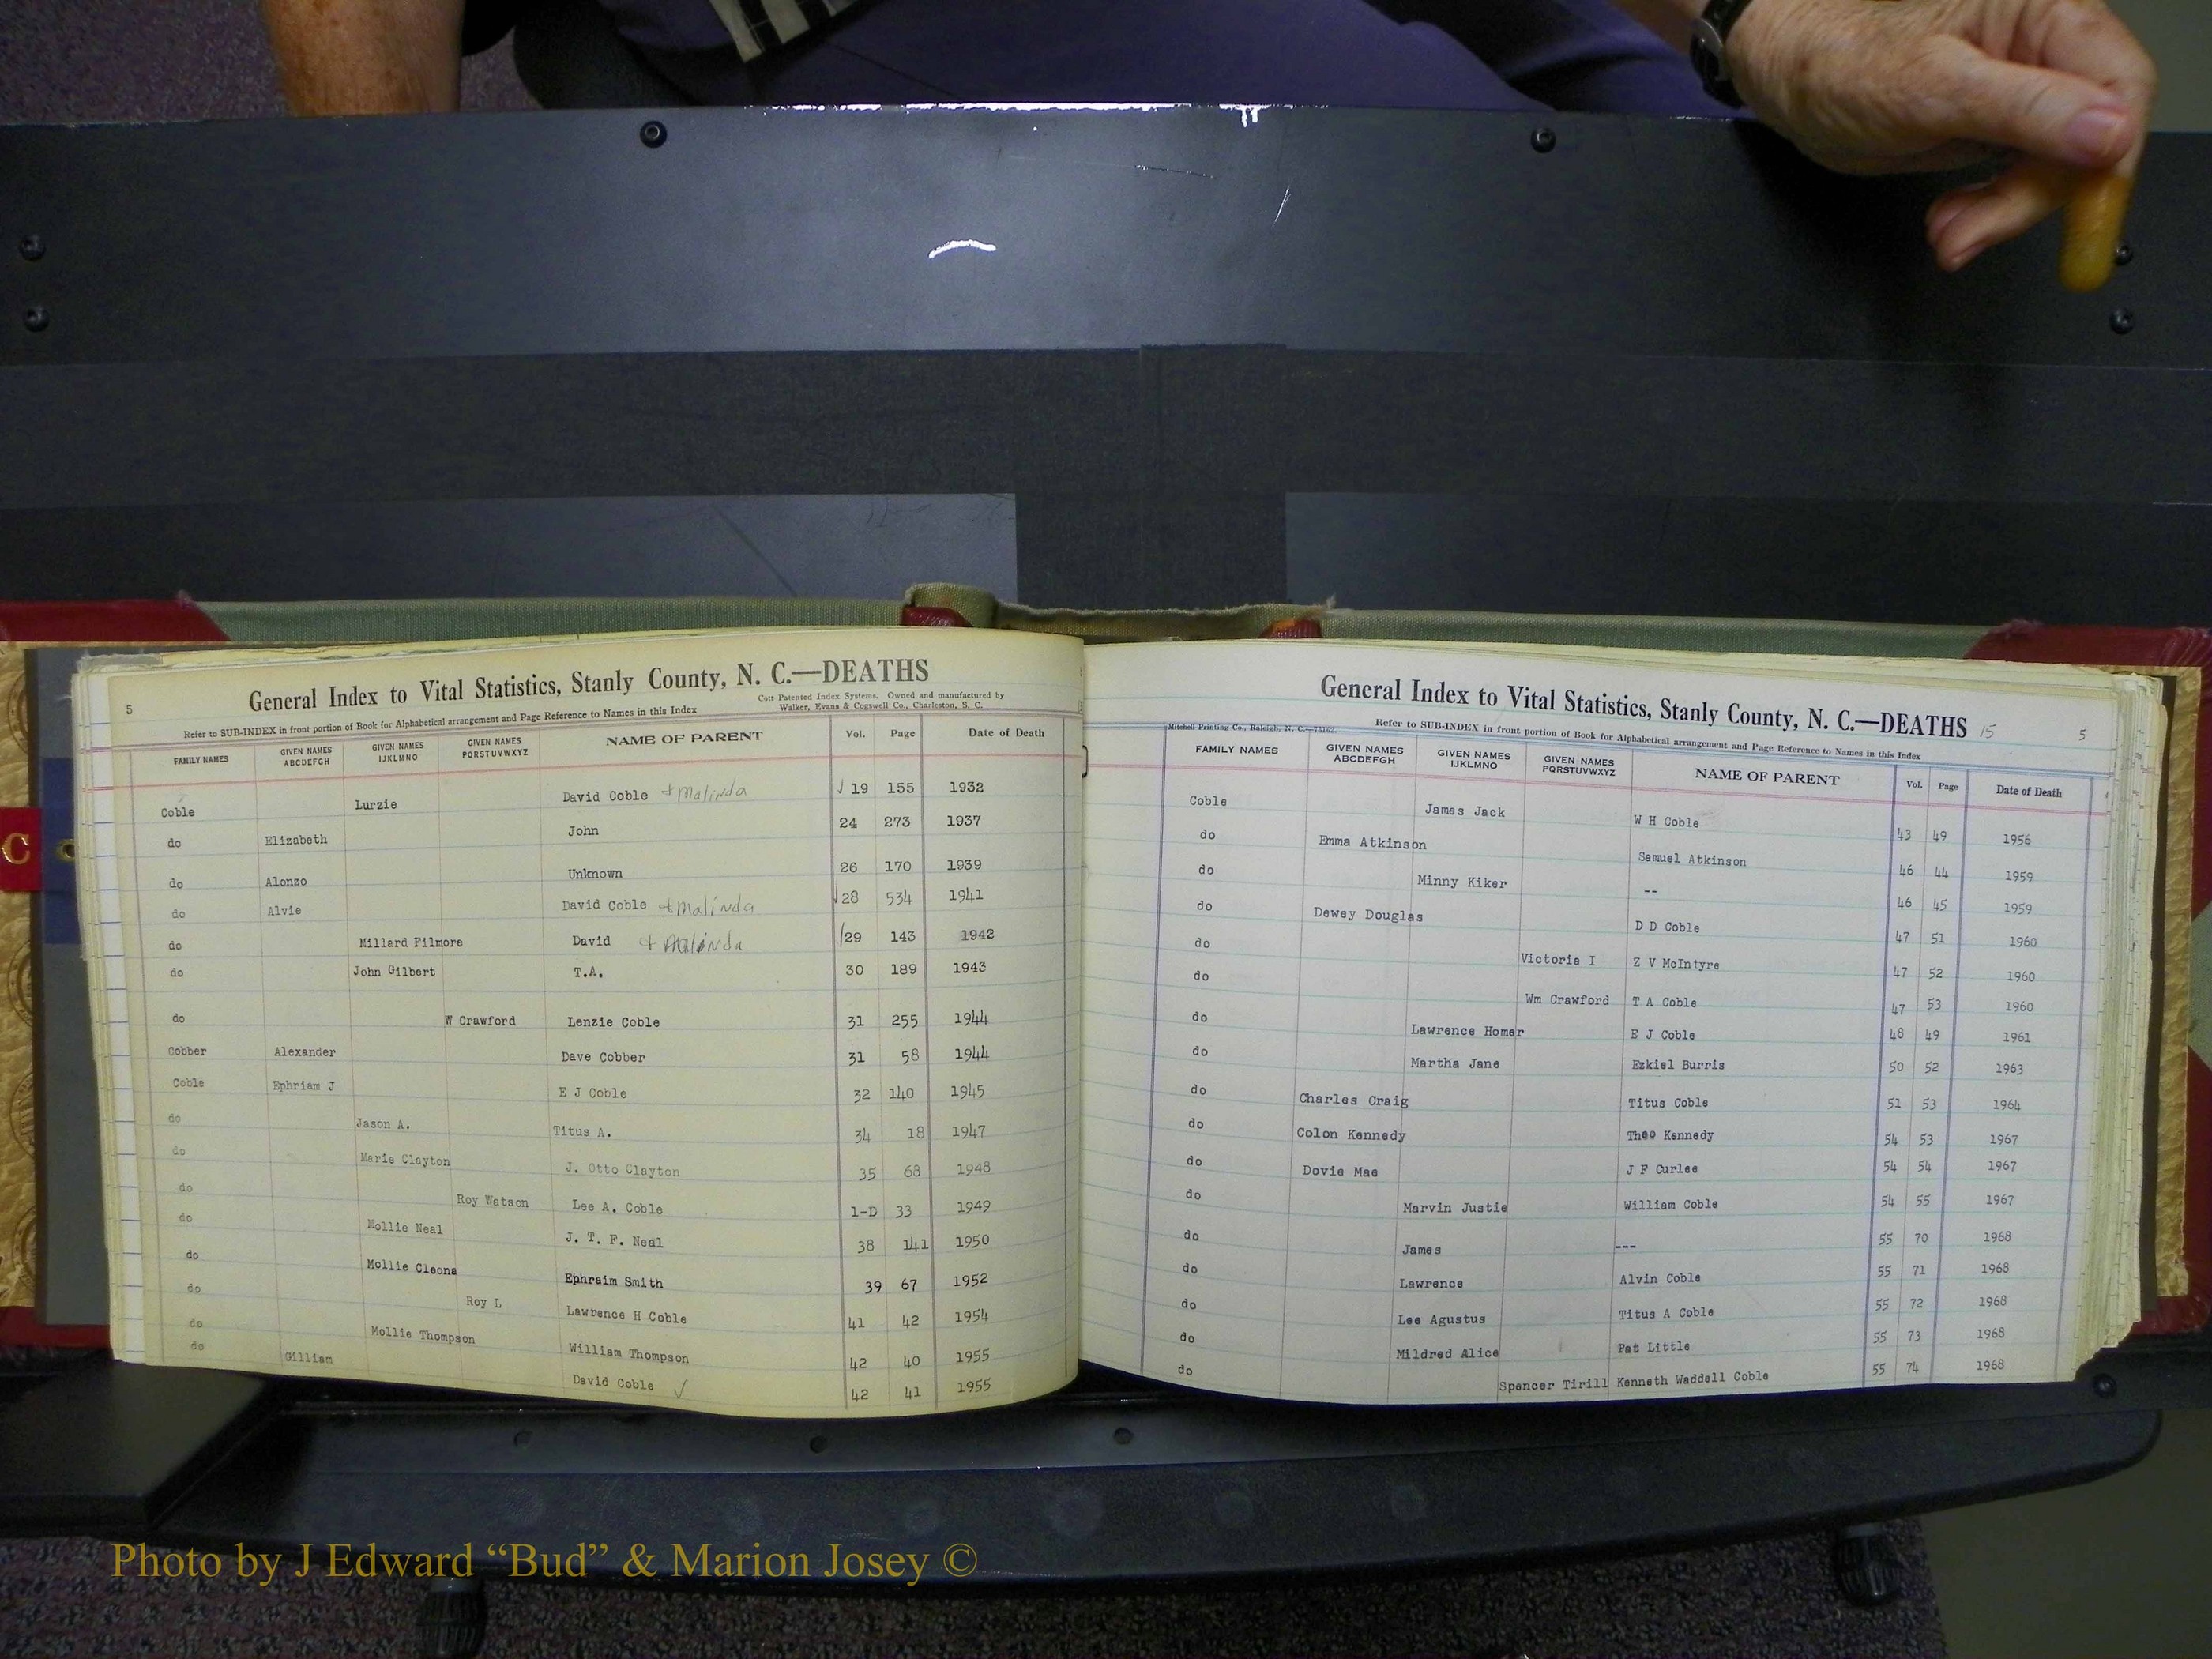 5
General Index to Vital Statistics, Stanly County, N. C.—DEATHS
Cott Patented Index Systems. Owned and manufactured by
Walker, Evans & Cogswell Co., Charleston, S. C.
Refer to SUB-INDEX in front portion of Book for Alphabetical arrangement and Page Reference to Names in this Index
FAMILY NAMES GIVEN NAMES ABCDEFGH GIVEN NAMES IJKLMNO GIVEN NAMES PQRSTUVWXYZ NAME OF PARENT Vol. Page Date of Death
Coble Lurzie David Coble + Malinda √ 19 155 1932
do Elizabeth John 24 273 1937
do Alonzo Unknown 26 170 1939
do Alvie David Coble + Malinda √ 28 534 1941
do Millard Filmore David + Malinda / 29 143 1942
do John Gilbert T.A. 30 189 1943
do W Crawford Lenzie Coble 31 255 1944
Cobber Alexander Dave Cobber 31 58 1944
Coble Ephriam J E J Coble 32 140 1945
do Jason A. Titus A. 34 18 1947
do Marie Clayton J. Otto Clayton 35 68 1948
do Roy Watson Lee A. Coble 1-D 33 1949
do Mollie Neal J. T. F. Neal 38 141 1950
do Mollie Cleona Ephraim Smith 39 67 1952
do Roy L Lawrence H Coble 41 42 1954
do Mollie Thompson William Thompson 42 40 1955
do Gilliam David Coble √ 42 41 1955
General Index to Vital Statistics, Stanly County, N. C.—DEATHS 15 5
Mitchell Printing Co., Raleigh, N. C.—73162.
Refer to SUB-INDEX in front portion of Book for Alphabetical arrangement and Page Reference to Names in this Index
FAMILY NAMES GIVEN NAMES ABCDEFGH GIVEN NAMES IJKLMNO GIVEN NAMES PQRSTUVWXYZ NAME OF PARENT Vol. Page Date of Death
Coble James Jack W H Coble 43 49 1956
do Emma Atkinson Samuel Atkinson 46 44 1959
do Minny Kiker -- 46 45 1959
do Dewey Douglas D D Coble 47 51 1960
do Victoria I Z V McIntyre 47 52 1960
do Wm Crawford T A Coble 47 53 1960
do Lawrence Homer E J Coble 48 49 1961
do Martha Jane Ezkiel Burris 50 52 1963
do Charles Craig Titus Coble 51 53 1964
do Colon Kennedy Theo Kennedy 54 53 1967
do Dovie Mae J F Curlee 54 54 1967
do Marvin Justie William Coble 54 55 1967
do James --- 55 70 1968
do Lawrence Alvin Coble 55 71 1968
do Lee Agustus Titus A Coble 55 72 1968
do Mildred Alice Pat Little 55 73 1968
do Spencer Tirill Kenneth Waddell Coble 55 74 1968
C
Photo by J Edward “Bud” & Marion Josey ©